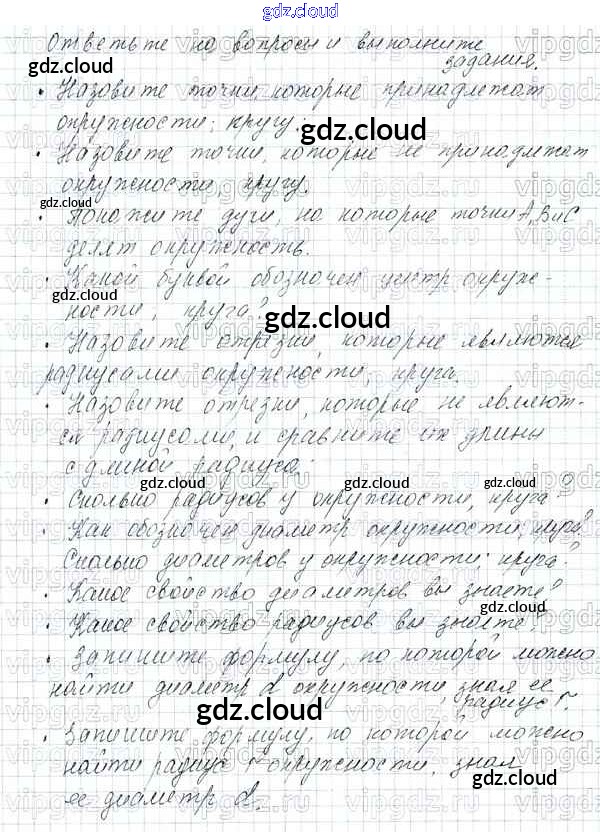 gdz.cloud
Ответьте на вопросы и выполните
задания.
gdz.cloud
• Назовите точки, которые принадлежат
окружности; кругу.
gdz.cloud
• Назовите точки, которые не принадлежат
окружности, кругу.
gdz.cloud
• Покажите дуги, на которые точки A, B и C
gdz.cloud
делят окружность.
• Какой буквой обозначен центр окруж-
gdz.cloud
ности; круга?
gdz.cloud
• Назовите отрезки, которые являются
радиусами окружности, круга.
• Назовите отрезки, которые не являют-
gdz.cloud
ся радиусами, и сравните их длины
с длиной радиуса.
gdz.cloud gdz.cloud gdz.cloud
• Сколько радиусов у окружности, круга?
• Как обозначен диаметр окружности, круга?
Сколько диаметров у окружности; круга?
• Какое свойство диаметров вы знаете?
gdz.cloud
• Какое свойство радиусов вы знаете?
• Запишите формулу, по которой можно
найти диаметр d окружности, зная ее
радиус r.
gdz.cloud gdz.cloud
• Запишите формулу, по которой можно
найти радиус r окружности, зная
gdz.cloud
ее диаметр d.